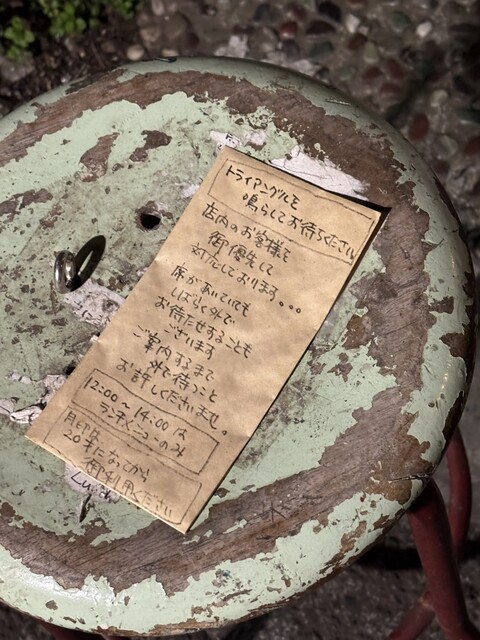 トライアングルを
鳴らしてお待ちください
店内のお客様を
御優先して
対応しております。。。
席があいていても
しばらく外で
お待たせすることも
ございます
ご案内するまで
外で待つこと
お許しくださいませ。
12:00〜14:00は
ランチメニューのみ
20才になってから
御利用ください